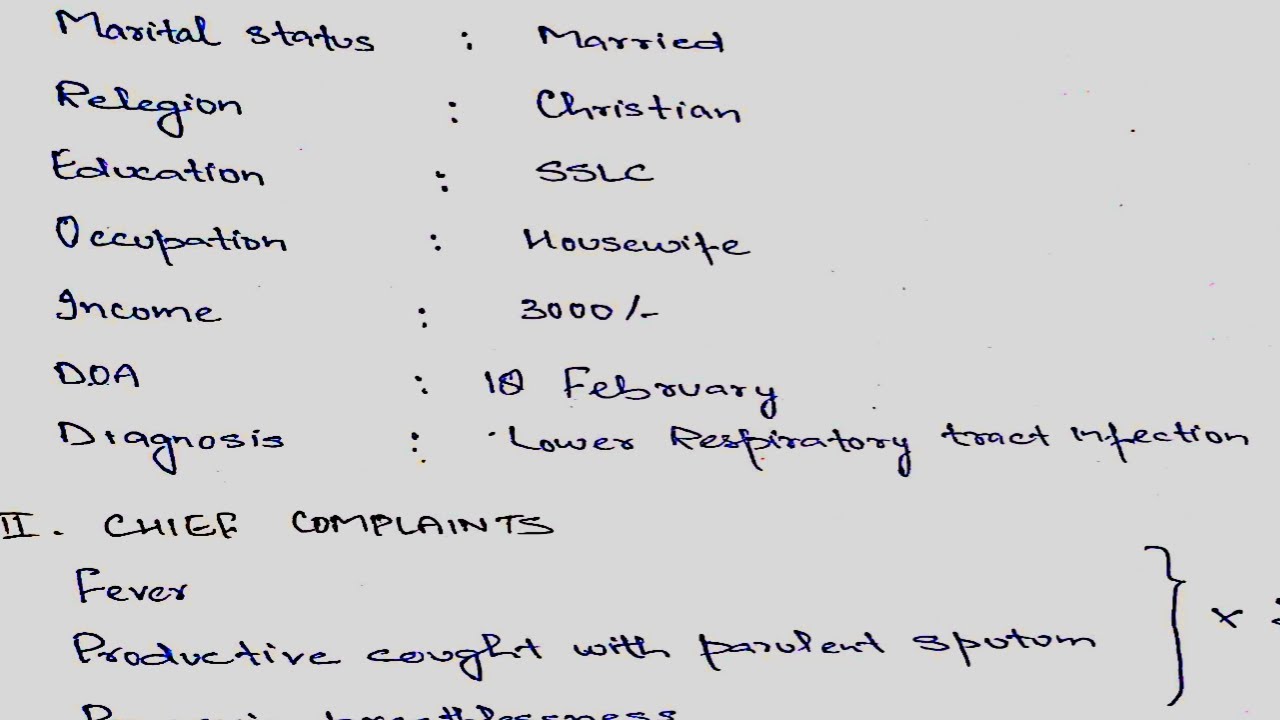 Marital status : Married
Relegion : Christian
Education : SSLC
Occupation : Housewife
Income : 3000/-
DOA : 10 February
Diagnosis : Lower Respiratory tract infection
II. CHIEF COMPLAINTS
Fever
Productive cought with parulent sputum } x
breathlessness